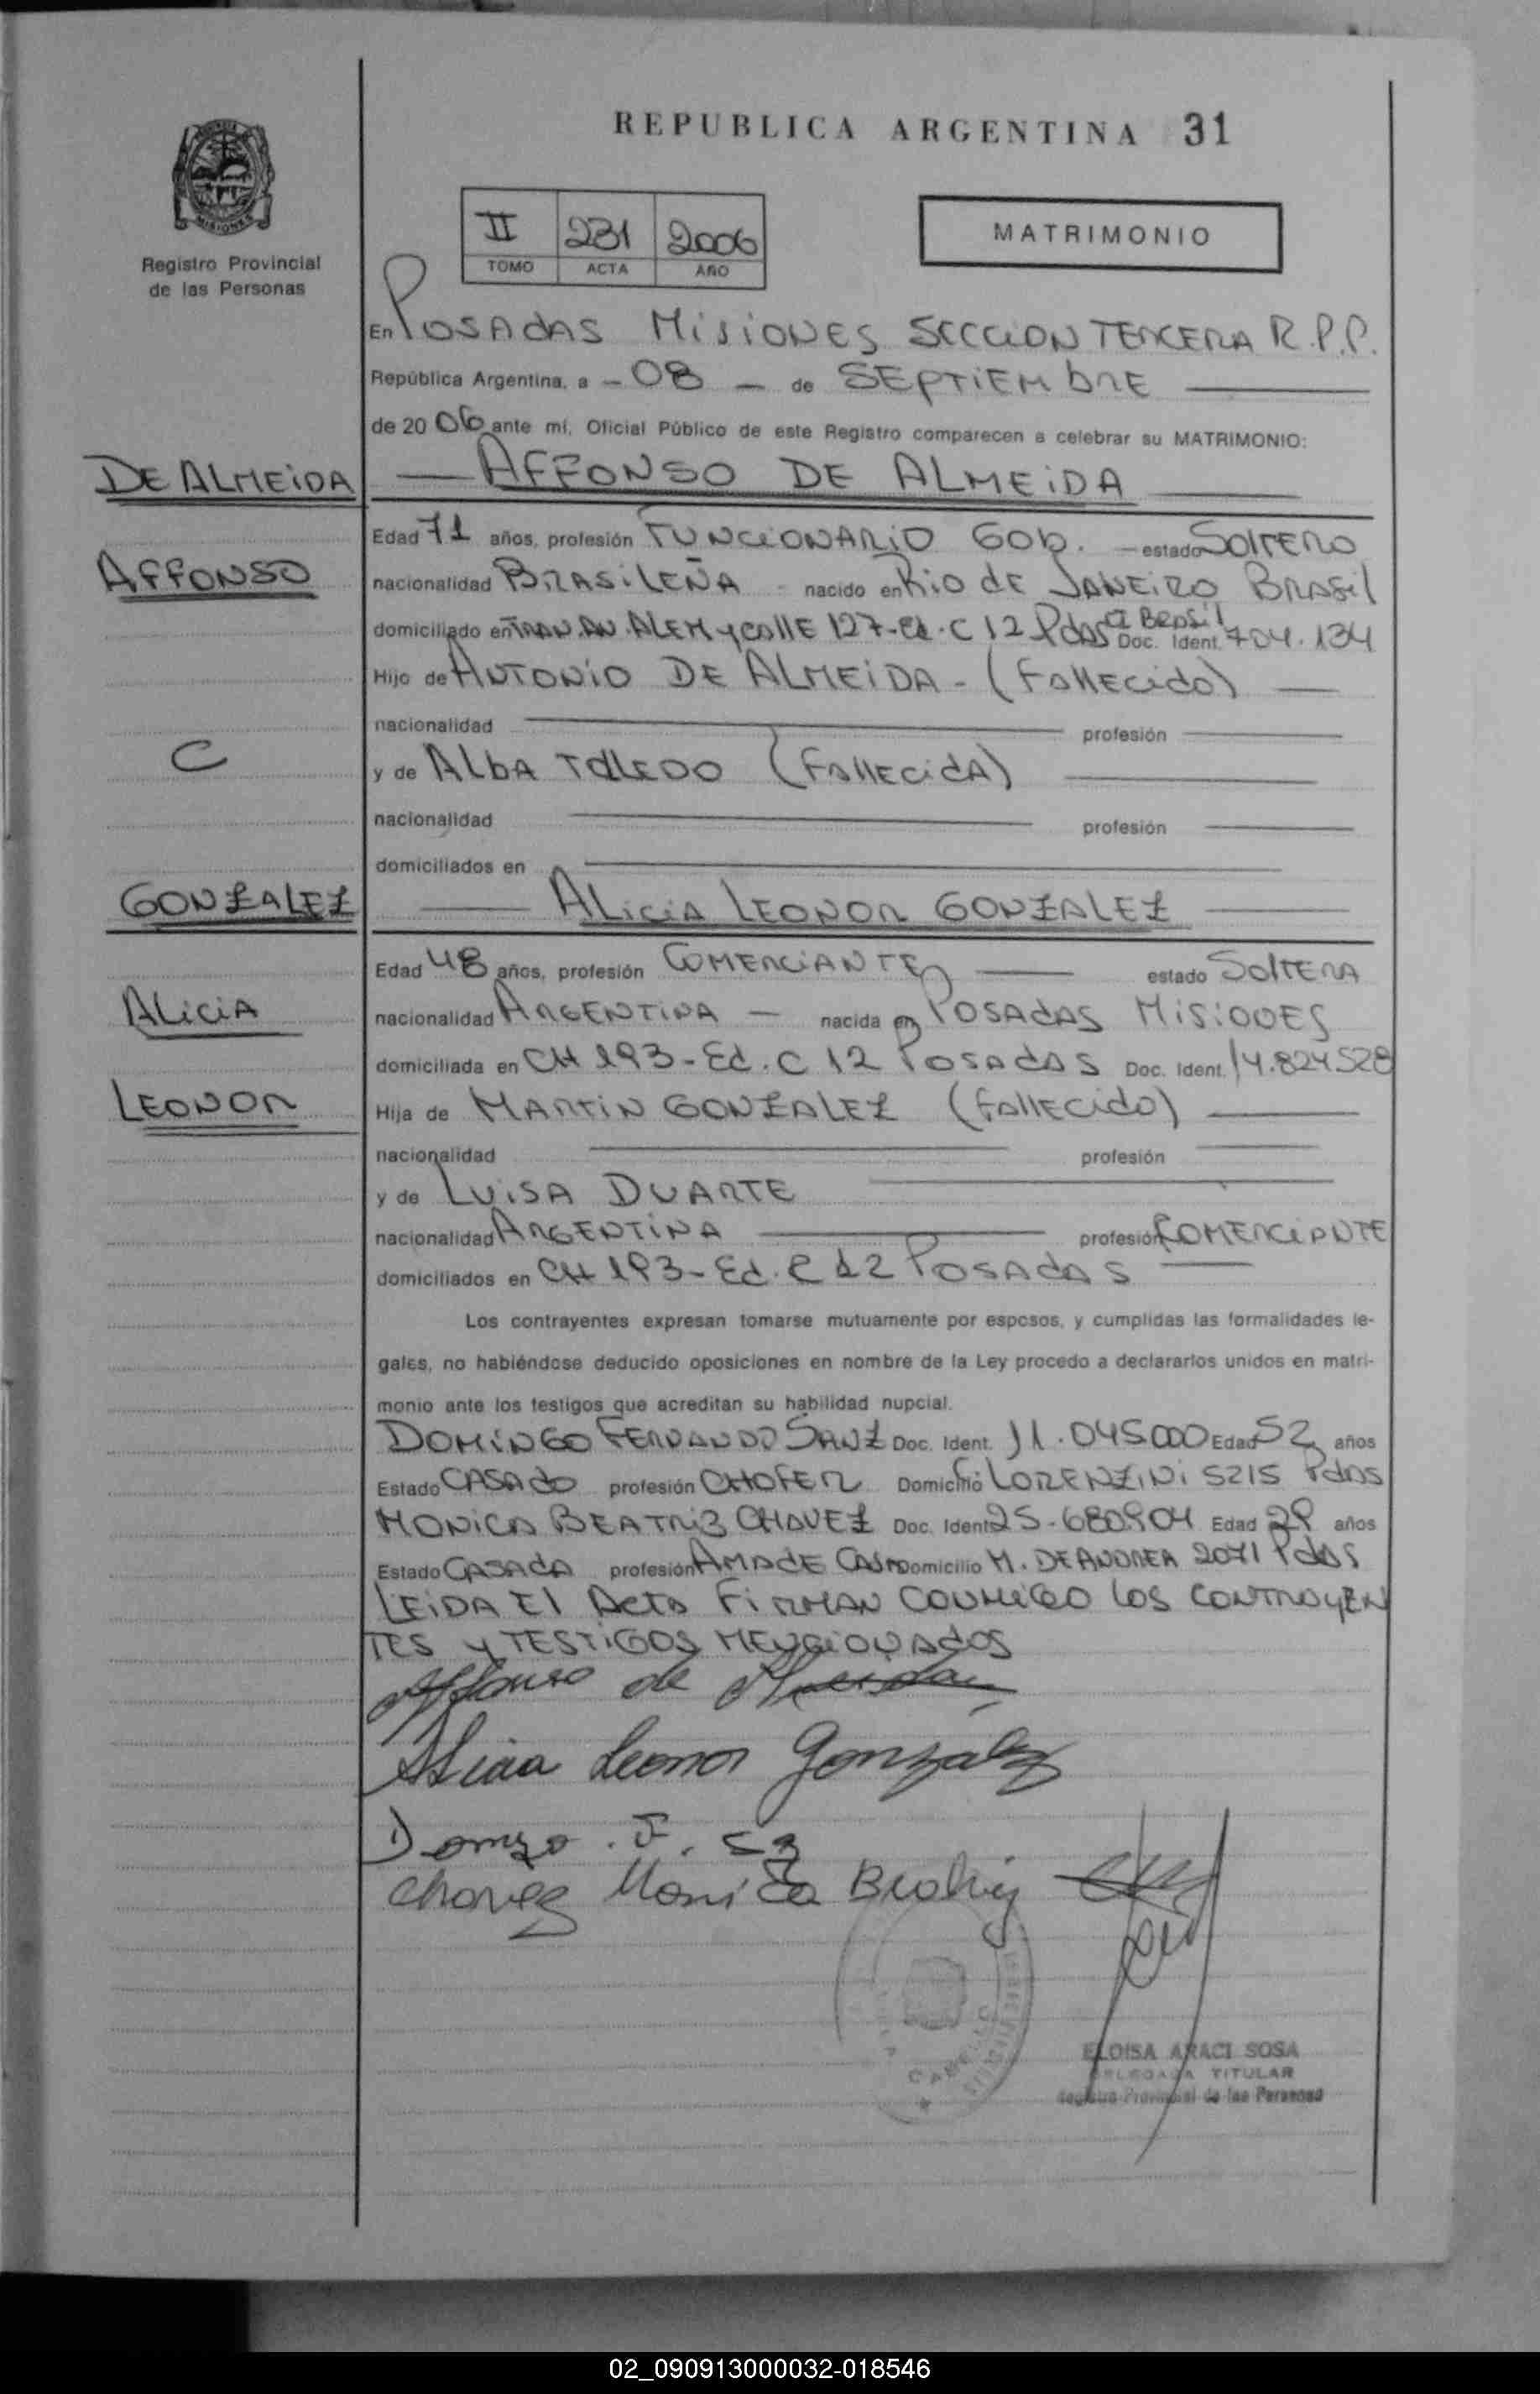 REPUBLICA ARGENTINA 31
MISIONES
Registro Provincial
de las Personas
II 231 2006
TOMO ACTA AÑO
MATRIMONIO
En POSADAS MISIONES SECCION TERCERA R.P.P.
República Argentina, a - 08 - de SEPTIEMBRE
de 20 06 ante mí, Oficial Público de este Registro comparecen a celebrar su MATRIMONIO:
DE ALMEIDA
AFFONSO DE ALMEIDA
Edad 71 años, profesión FUNCIONARIO GOB. - estado SOLTERO
AFFONSO
nacionalidad BRASILEÑA - nacido en RIO DE JANEIRO BRASIL
domiciliado en AV. ALEM y CALLE 127-Ed. C 12 Pdas CI BRASIL Doc. Ident. 704.134
Hijo de ANTONIO DE ALMEIDA - (FALLECIDO)
nacionalidad profesión
C
y de ALBA TOLLEDO (FALLECIDA)
nacionalidad profesión
domiciliados en
GONZALEZ
ALICIA LEONOR GONZALEZ
Edad 48 años, profesión COMERCIANTE estado SOLTERA
ALICIA
nacionalidad ARGENTINA - nacida en POSADAS MISIONES
domiciliada en CH 193-Ed. C 12 POSADAS Doc. Ident. 14.824.528
LEONOR
Hija de MARTIN GONZALEZ (FALLECIDO)
nacionalidad profesión
y de LUISA DUARTE
nacionalidad ARGENTINA profesión COMERCIANTE
domiciliados en CH 193-Ed. C 12 POSADAS
Los contrayentes expresan tomarse mutuamente por esposos, y cumplidas las formalidades le-
gales, no habiéndose deducido oposiciones en nombre de la Ley procedo a declararlos unidos en matri-
monio ante los testigos que acreditan su habilidad nupcial.
DOMINGO FERNANDO SANZ Doc. Ident. 11.045000 Edad 52 años
Estado CASADO profesión CHOFER Domicilio LORENZINI 5215 Pdas
MONICA BEATRIZ CHAVEZ Doc. Ident. 25-680904 Edad 29 años
Estado CASADA profesión AMA DE CASA Domicilio M. DE ANDREA 2071 Pdas
LEIDA El Acta FIRMAN CONMIGO LOS CONTRAYEN
TES y TESTIGOS MENCIONADOS
Affonso de Almeida
Alicia Leonor Gonzalez
Domgo. F. Sz
Chavez Monica Beatriz
ELOISA ARACI SOSA
DELEGADA TITULAR
Registro Provincial de las Personas
02_090913000032-018546